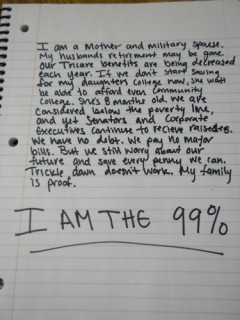 I am a Mother and military spouse.
My husbands retirement may be gone.
Our Tricare benefits are being decreased
each year. If we don't start saving
for my daughters college now, she won't
be able to afford even Community
College. She's 8 months old. We are
considered below the poverty line,
and yet Senators and Corporate
Executives continue to recieve raises.
We have no debt. We pay no major
bills. But we still worry about our
future and save every penny we can.
Trickle down doesn't work. My family
is proof.
I AM THE 99%